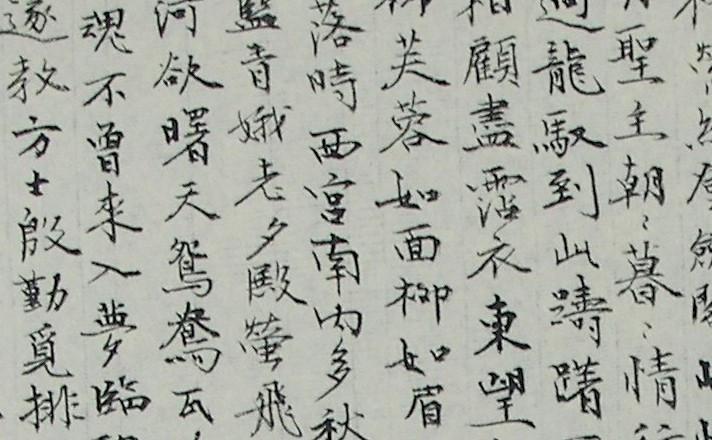 縈紆登劍閣
聖主朝〻暮〻情
迴龍馭到此躊躇
相顧盡霑衣東望
柳芙蓉如面柳如眉
落時西宮南內多秋
監青娥老夕殿螢飛
河欲曙天鴛鴦瓦
魂不曾來入夢臨
遂教方士殷勤覓排